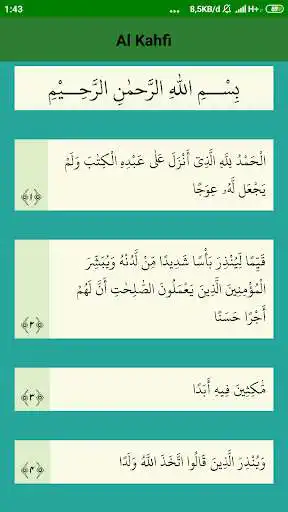 1:43 ... 8,5KB/d H+
Al Kahfi
بِسْــمِ اللهِ الرَّحْمٰنِ الرَّحِـــيْمِ
الْحَمْدُ لِلَّهِ الَّذِيْٓ أَنْزَلَ عَلٰى عَبْدِهِ الْكِتٰبَ وَلَمْ
يَجْعَل لَّهُۥ عِوَجًا
﴿١﴾
قَيِّمًا لِّيُنْذِرَ بَأْسًا شَدِيدًا مِّنْ لَّدُنْهُ وَيُبَشِّرَ
الْمُؤْمِنِينَ الَّذِينَ يَعْمَلُونَ الصّٰلِحٰتِ أَنَّ لَهُمْ
أَجْرًا حَسَنًا
﴿٢﴾
مّٰكِثِينَ فِيهِ أَبَدًا
﴿٣﴾
وَيُنْذِرَ الَّذِينَ قَالُوا اتَّخَذَ اللَّهُ وَلَدًا
﴿٤﴾